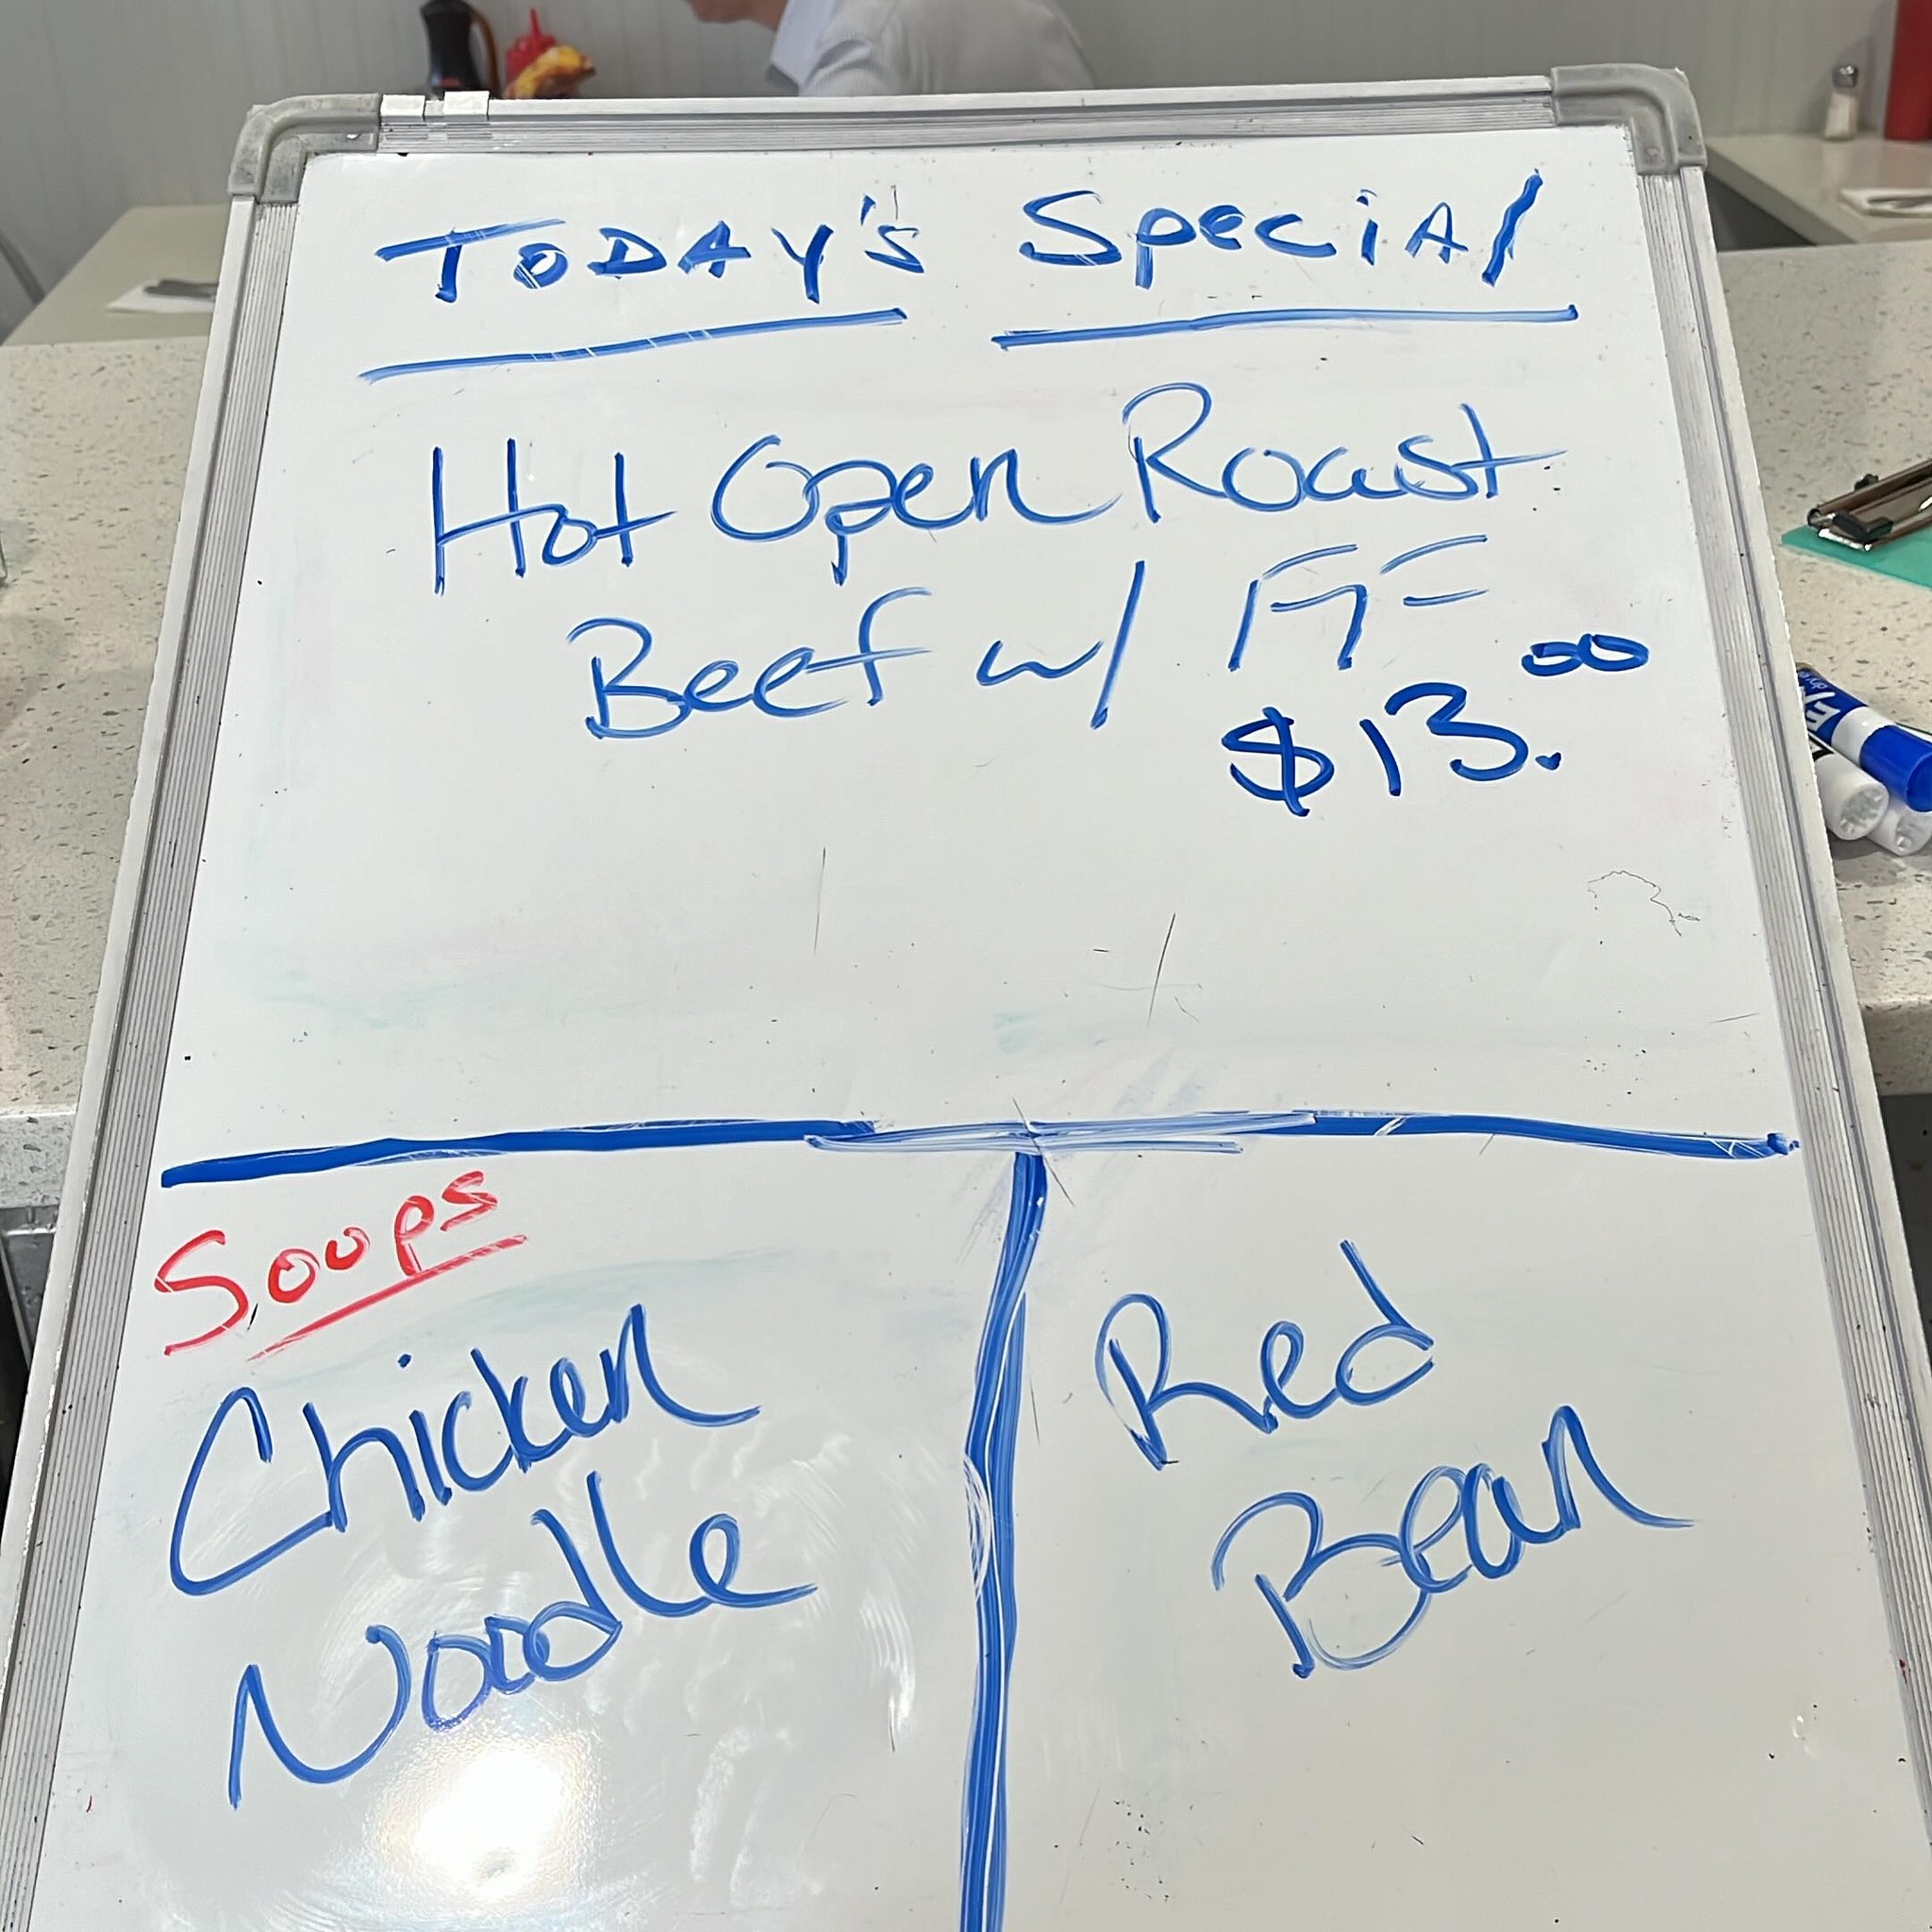 TODAY'S SpeciAl
Hot Open Roast
Beef w/ FF
$13.00
Soups
Chicken
Noodle
Red
Bean